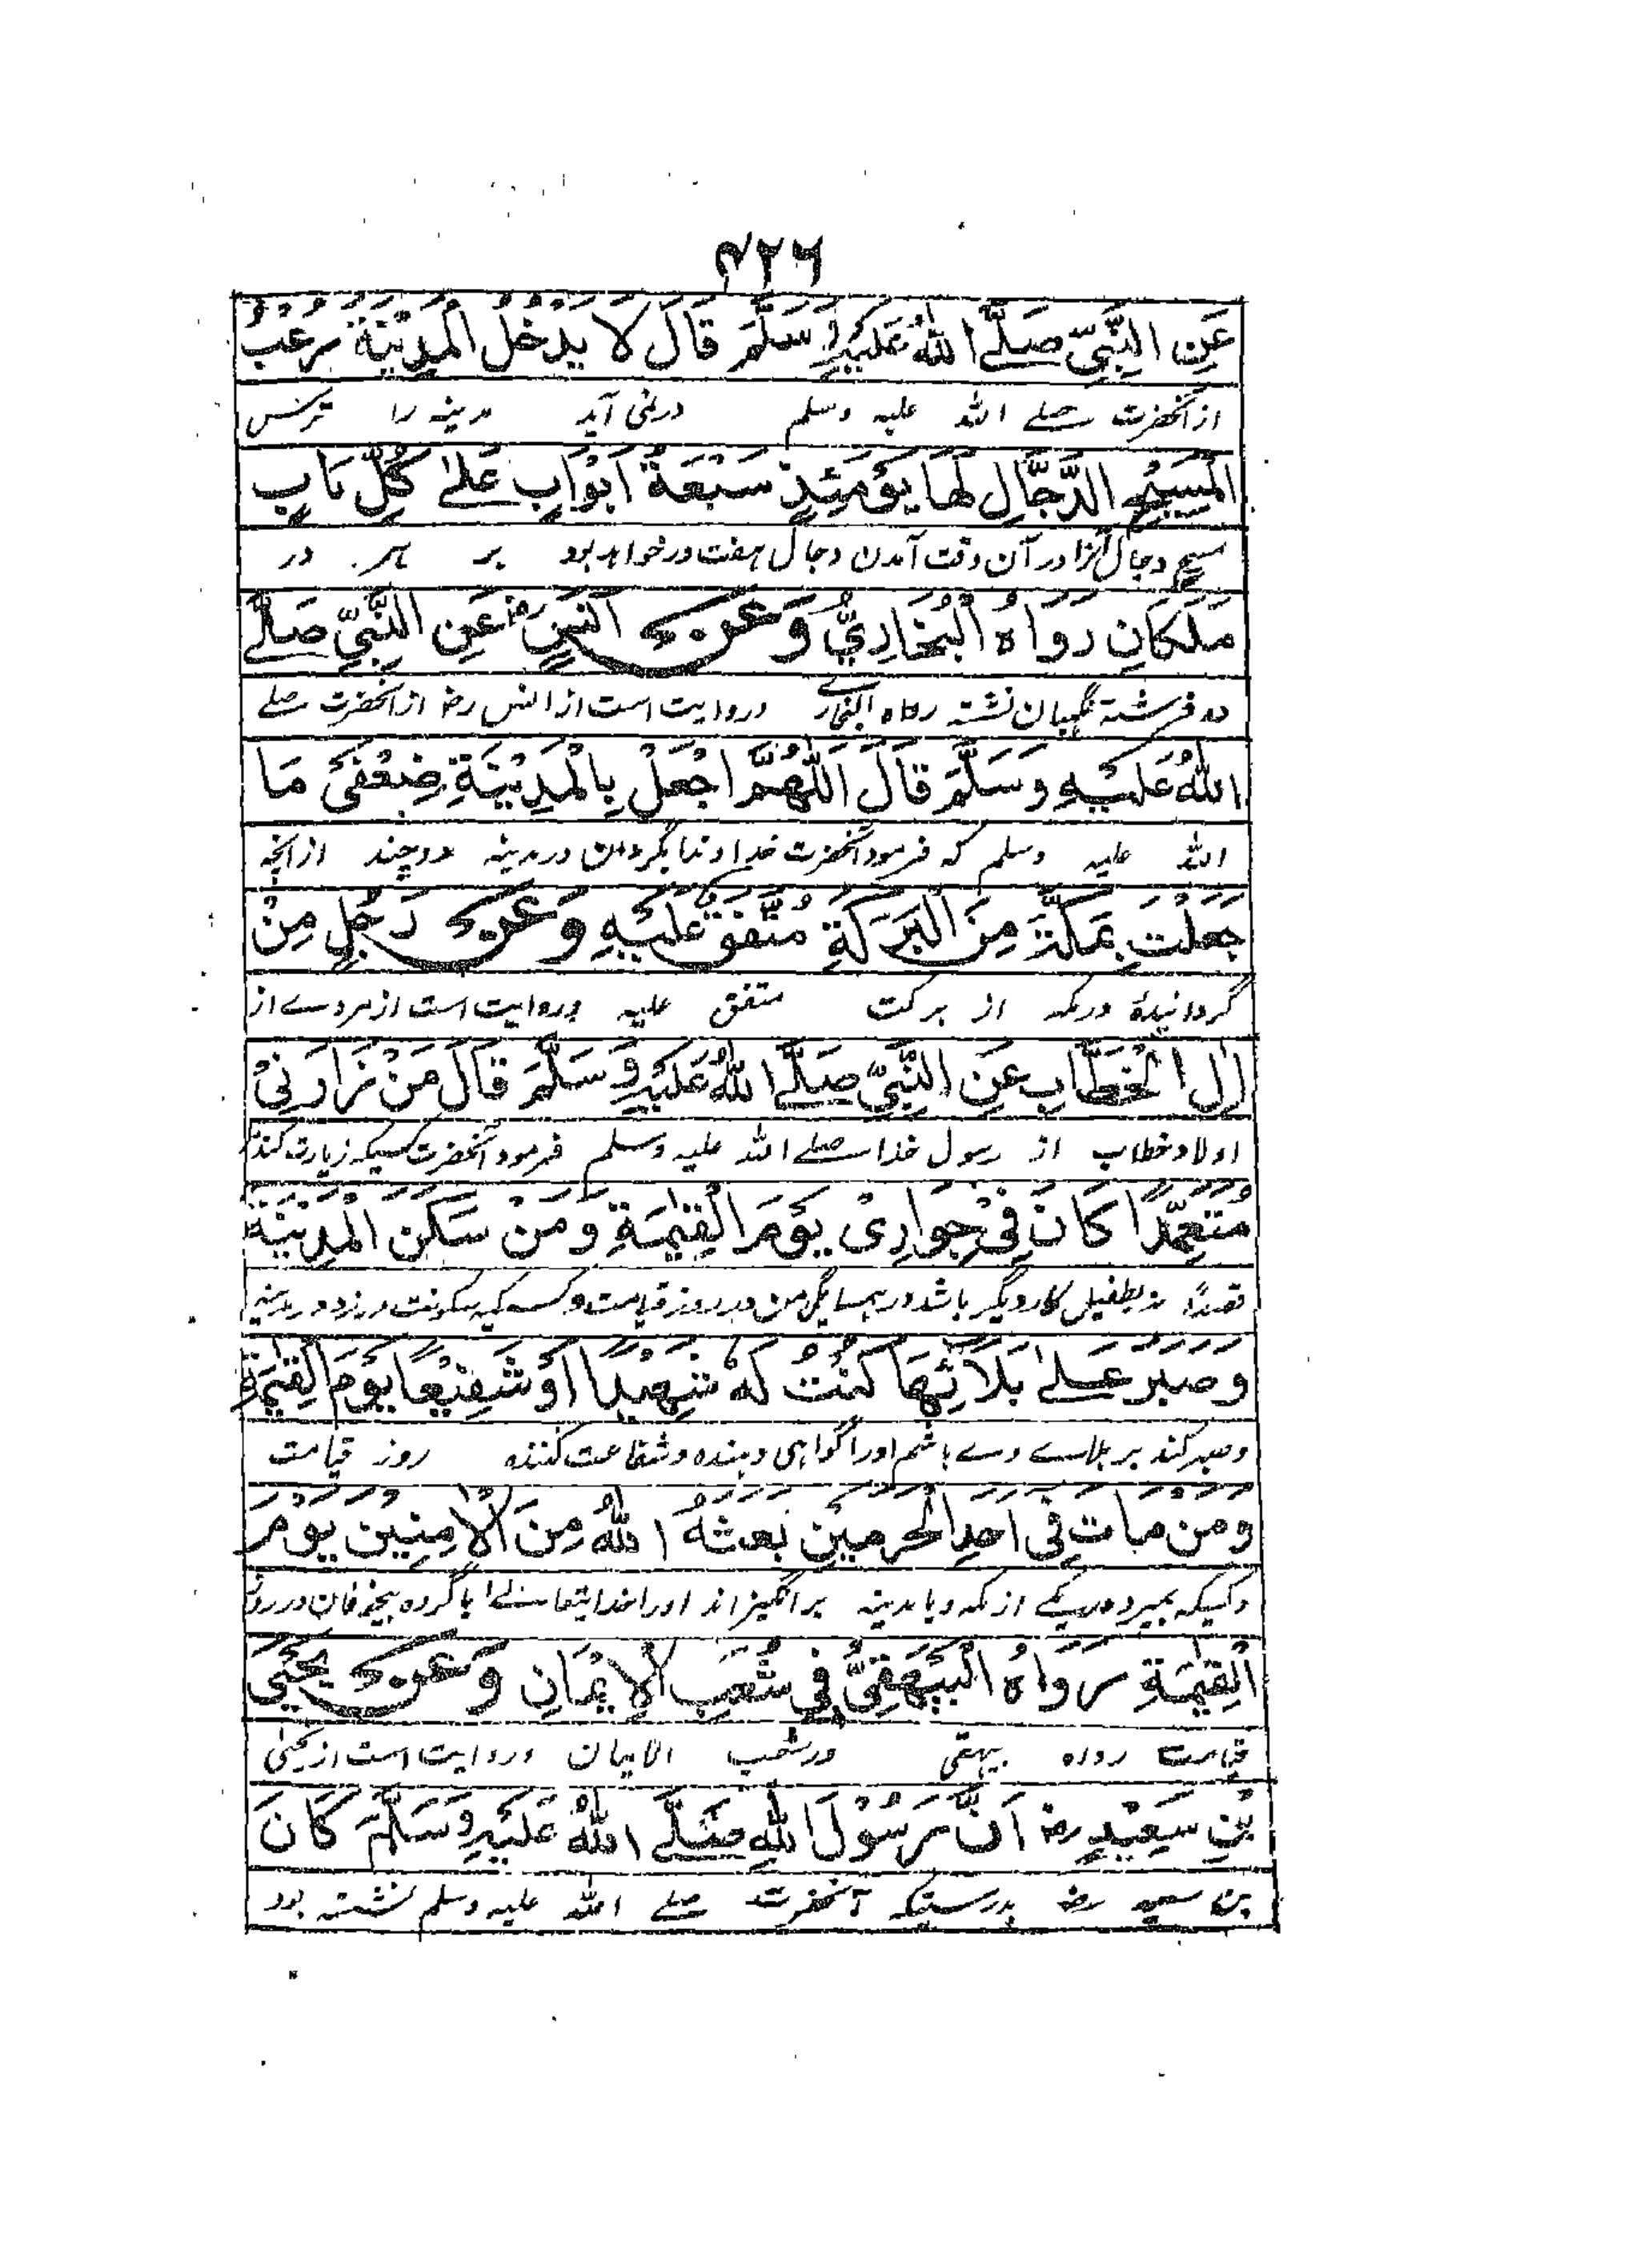 ۴۲۶
عَنِ النَّبِيِّ صَلَّے اللّٰهُ عَلَيْهِ وَسَلَّمَ قَالَ لَا يَدْخُلُ الْمَدِيْنَةَ رُعْبُ
از آنحضرت صلے اللہ علیہ وسلم درنمی آید مدینہ را ترس
الْمَسِيْحِ الدَّجَّالِ لَهَا يَوْمَئِذٍ سَبْعَةُ اَبْوَابٍ عَلٰى كُلِّ بَابٍ
مسیح دجال آنرا در آن وقت آمدن دجال ہفت در خواہد بود بر ہر در
مَلَكَانِ رَوَاهُ الْبُخَارِيُّ وَعَنْ اَنَسٍ رض عَنِ النَّبِيِّ صَلَّے
دو فرشتہ نگہبان نشتہ رواہ البخاری و روایت است از انس رض از آنحضرت صلے
اللّٰهُ عَلَيْهِ وَسَلَّمَ قَالَ اَللّٰهُمَّ اجْعَلْ بِالْمَدِيْنَةِ ضِعْفَىْ مَا
اللہ علیہ وسلم کہ فرمود آنحضرت خداوندا بگردان در مدینہ دوچند از آنچہ
جَعَلْتَ بِمَكَّةَ مِنَ الْبَرَكَةِ مُتَّفَقٌ عَلَيْهِ وَعَنْ رَجُلٍ مِنْ
گردانیدۂ در مکہ از برکت متفق علیہ و روایت است از مردے از
اٰلِ الْخَطَّابِ عَنِ النَّبِيِّ صَلَّے اللّٰهُ عَلَيْهِ وَسَلَّمَ قَالَ مَنْ زَارَنِىْ
اولاد خطاب از رسول خدا صلے اللہ علیہ وسلم فرمود آنحضرت کسیکہ زیارت کند
مُتَعَمِّدًا كَانَ فِىْ جِوَارِىْ يَوْمَ الْقِيٰمَةِ وَمَنْ سَكَنَ الْمَدِيْنَةَ
قصدًا نہ بطفیل کار دیگر باشد در ہمسایگی من در روز قیامت و کسیکہ سکونت ورزد در مدینہ
وَصَبَرَ عَلٰى بَلَائِهَا كُنْتُ لَهُ شَهِيْدًا اَوْ شَفِيْعًا يَوْمَ الْقِيٰمَةِ
و صبر کند بر بلاے وے باشم او را گواہی دہندہ و شفاعت کنندہ روز قیامت
وَمَنْ مَاتَ فِىْ اَحَدِ الْحَرَمَيْنِ بَعَثَهُ اللّٰهُ مِنَ الْاٰمِنِيْنَ يَوْمَ
و کسیکہ بمیرد در یکے از مکہ و یا مدینہ بر انگیزاند او را خدایتعالے با گروہ بیخوفان در روز
الْقِيٰمَةِ رَوَاهُ الْبَيْهَقِىُّ فِىْ شُعَبِ الْاِيْمَانِ وَعَنْ يَحْيَى
قیامت رواہ بیہقی در شعب الایمان و روایت است از یحیٰی
بْنِ سَعِيْدٍ رض اَنَّ رَسُوْلَ اللّٰهِ صَلَّے اللّٰهُ عَلَيْهِ وَسَلَّمَ كَانَ
بن سعید رض بدرستیکہ آنحضرت صلے اللہ علیہ وسلم نشتہ بود